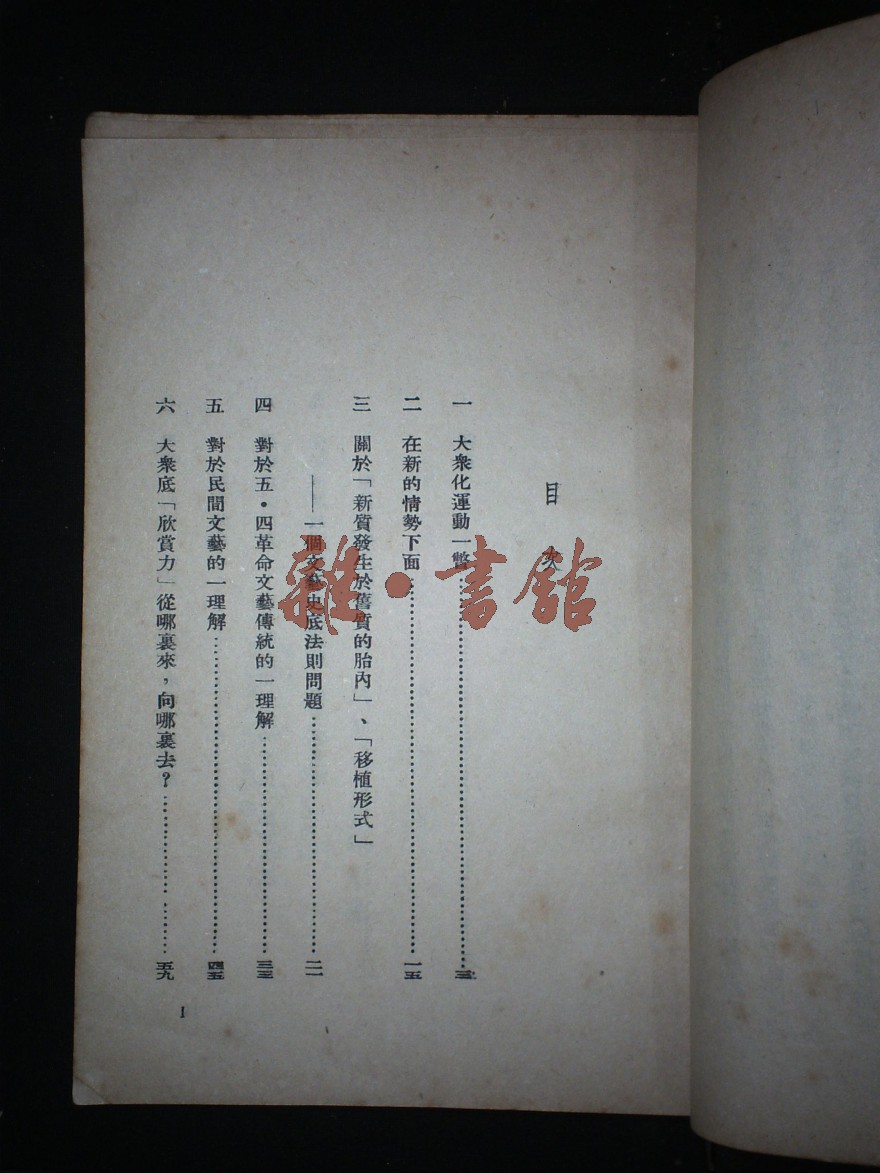 目次
一　大衆化運動一瞥…………三
二　在新的情勢下面…………一五
三　關於「新質發生於舊質的胎內」、「移植形式」
——一個文藝史底法則問題…………二一
四　對於五・四革命文藝傳統的一理解…………三三
五　對於民間文藝的一理解…………四五
六　大衆底「欣賞力」從哪裏來，向哪裏去？…………五九
I
雜・書館